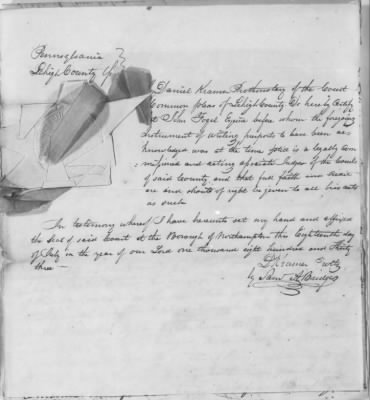 Pennsylvania
Lehigh County ss
I Daniel Kramer Prothonotary of the Court
Common pleas of Lehigh County Do hereby Certify
t John Fogel Esquire before whom the foregoing
Instrument of writing purports to have been ac
knowledged was at the time &
is a legally com
:missioned and acting associate Judge of the Courts
of said County and that full faith and credit
are and should of right be given to all his acts
as such
In testimony whereof I have hereunto set my hand and affixed
the Seal of said Court at the Borough of Northampton this Eighteenth day
of July in the year of our Lord one thousand eight hundred and thirty
three —
D Kramer Proty
by Saml A Bridges